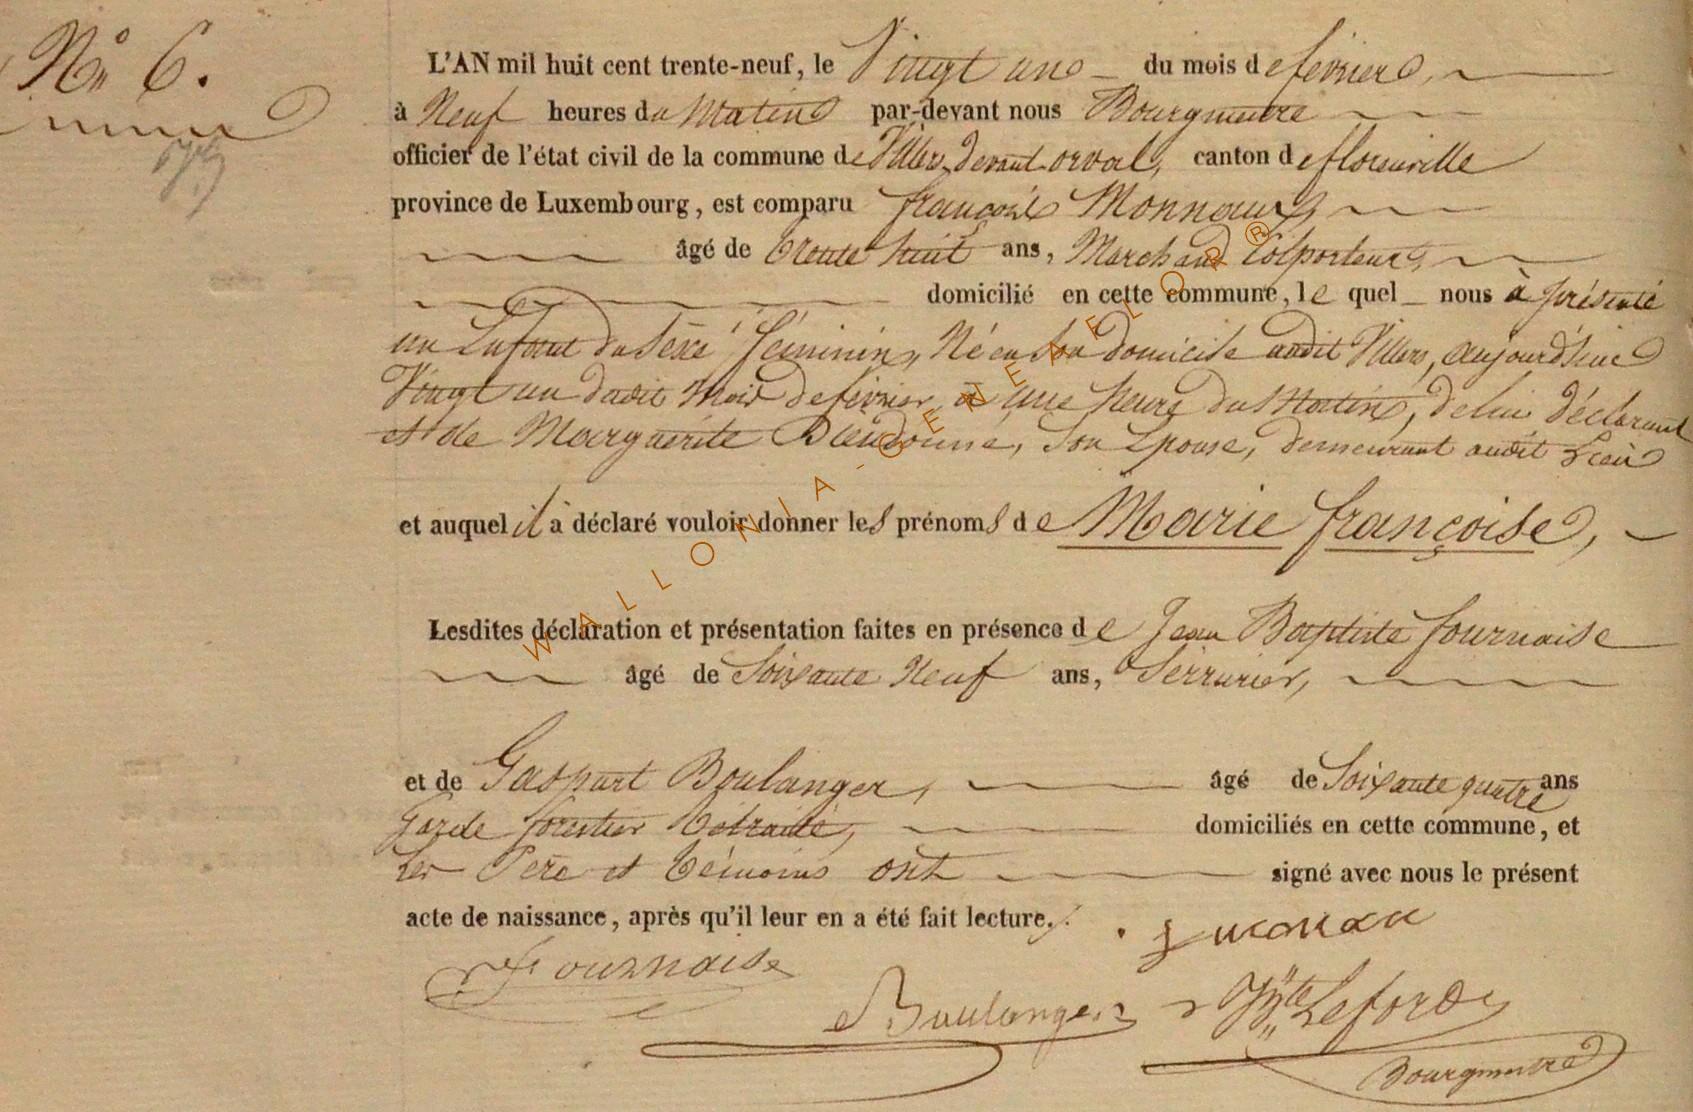 N° 6.
L'AN mil huit cent trente-neuf, le Vingt un du mois de février,
à Neuf heures du Matin par-devant nous Bourgmestre
officier de l'état civil de la commune de Villers devant orval, canton de florenville
province de Luxembourg, est comparu françois
âgé de trente huit ans, Marchand Colporteur,
domicilié en cette commune, le quel nous à présenté
un Enfant du Sexe féminin, Né en Son domicile audit Villers, aujourd'hui
Vingt un dudit Mois de février, à une heure du Matin, de lui déclarant
et de Marguerite Dieudonné, Son Epouse, demeurant audit Lieu
et auquel il à déclaré vouloir donner les prénoms de Marie françoise,
Lesdites déclaration et présentation faites en présence de Jean Baptiste fournaise
âgé de Soixante Neuf ans, Serrurier,
et de Gaspart Boulanger, âgé de Soixante quatre ans
Garde forestier Retraité, domiciliés en cette commune, et
Les Père et témoins ont signé avec nous le présent
acte de naissance, après qu'il leur en a été fait lecture.
Fournaise
Boulanger
Bourgmestre
WALLONIA-GENEAELOR®